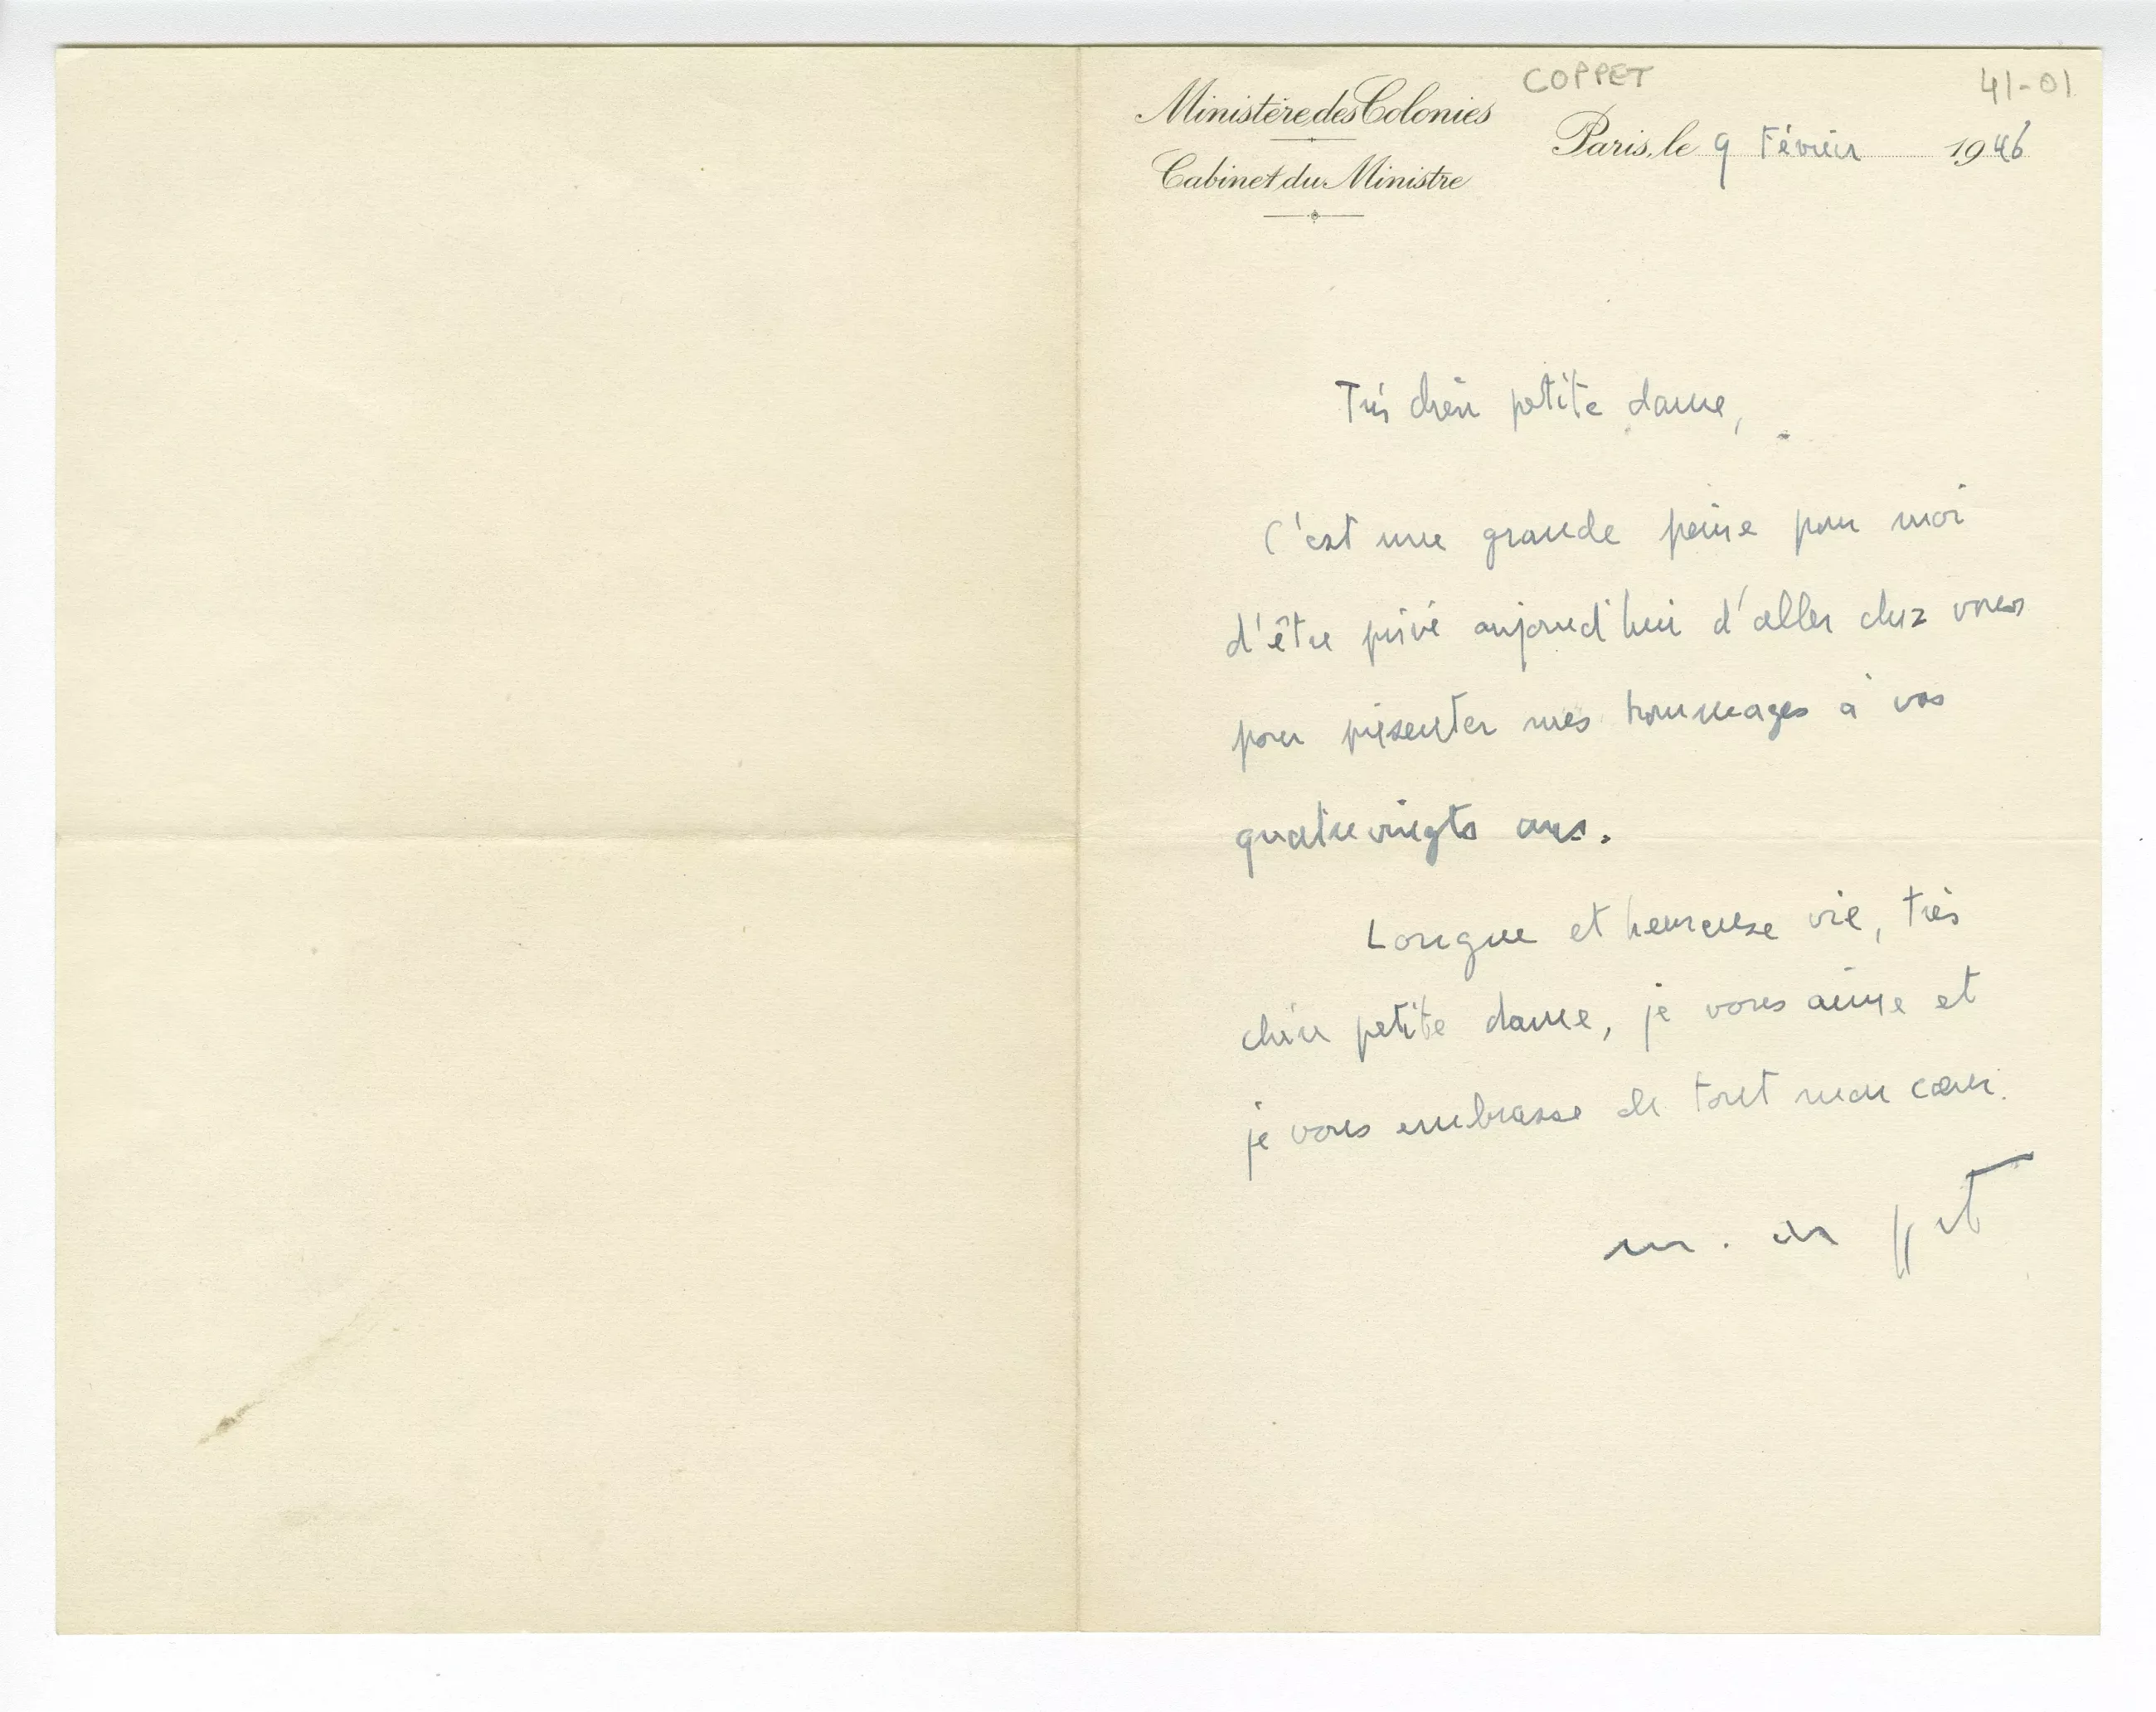 COPPET
41-01
Ministère des Colonies
Cabinet du Ministre
Paris, le 9 Février 1946
Très chère petite dame,
C'est une grande peine pour moi
d'être privé aujourd'hui d'aller chez vous
pour présenter mes hommages à vos
quatre vingts ans.
Longue et heureuse vie, très
chère petite dame, je vous aime et
je vous embrasse de tout mon cœur.
m. de Coppet